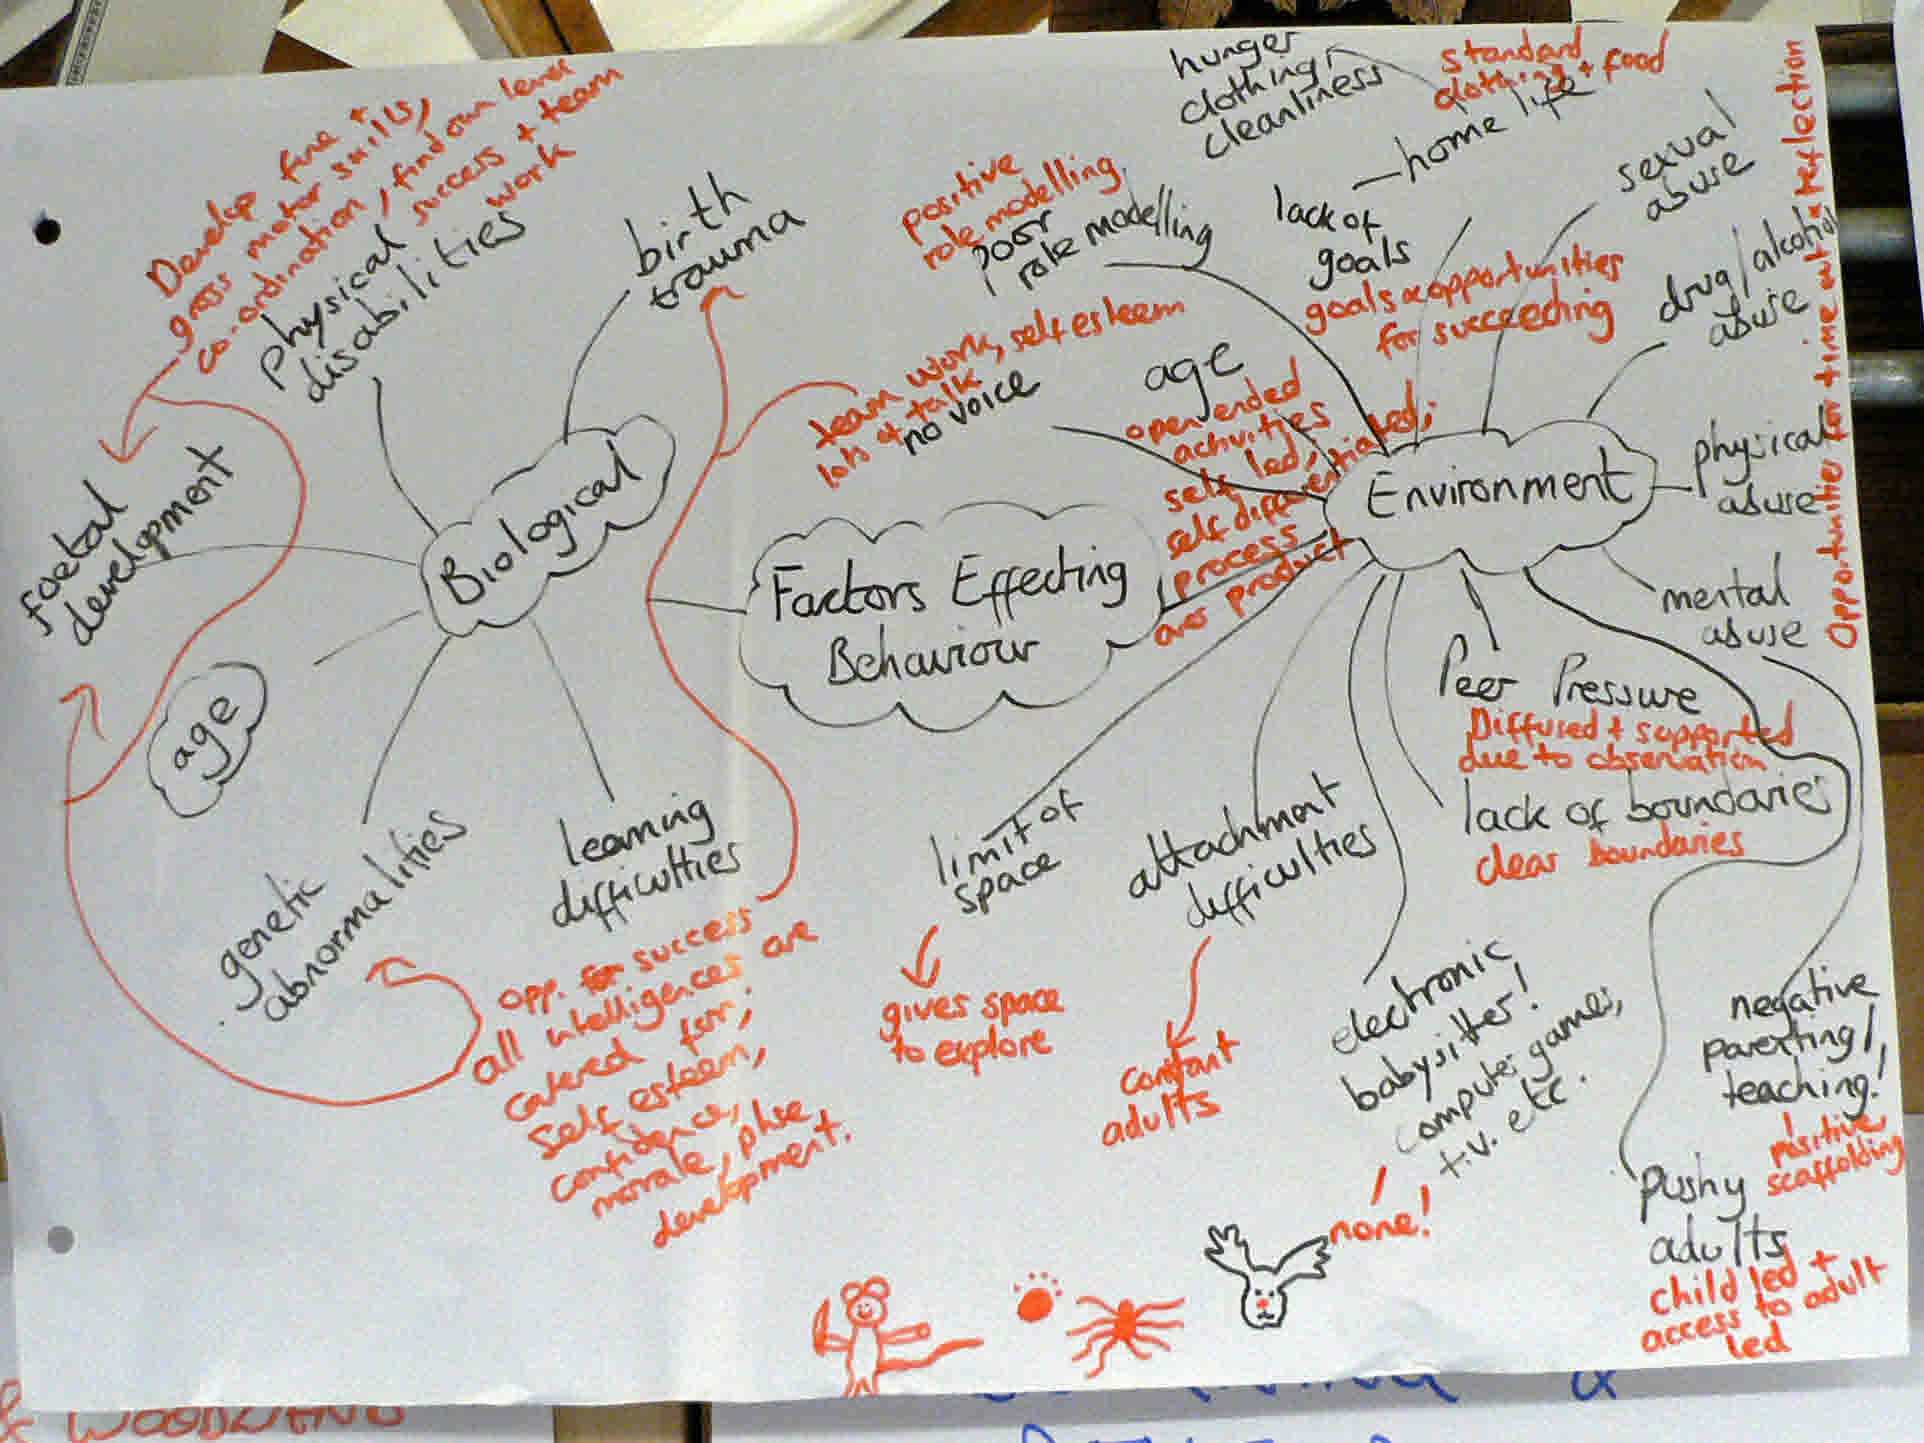 Develop fine +
gross motor skills,
co-ordination, find own level
success + team
work
physical
disabilities
birth
trauma
foetal
development
Biological
age
genetic
abnormalities
learning
difficulties
opp. for success
all intelligences are
catered for,
Self esteem,
confidence,
morale, phse
development.
Factors Effecting
Behaviour
positive
role modelling
poor
role modelling
team work, self esteem
lots of talk
no voice
age
open ended
activities
self led,
self differentiated;
process
over product
hunger
clothing,
cleanliness
standard
clothing + food
home life
lack of
goals
goals & opportunities
for succeeding
sexual
abuse
drug/alcohol
abuse
Opportunities for time out & reflection
Environment
physical
abuse
mental
abuse
Peer Pressure
Diffused + supported
due to observation
lack of boundaries
clear boundaries
limit of
space
gives space
to explore
attachment
difficulties
constant
adults
electronic
babysitter!
computer games,
t.v. etc.
none!
negative
parenting/
teaching!
positive
scaffolding
pushy
adults
child led +
access to adult
led
& WOODLAND